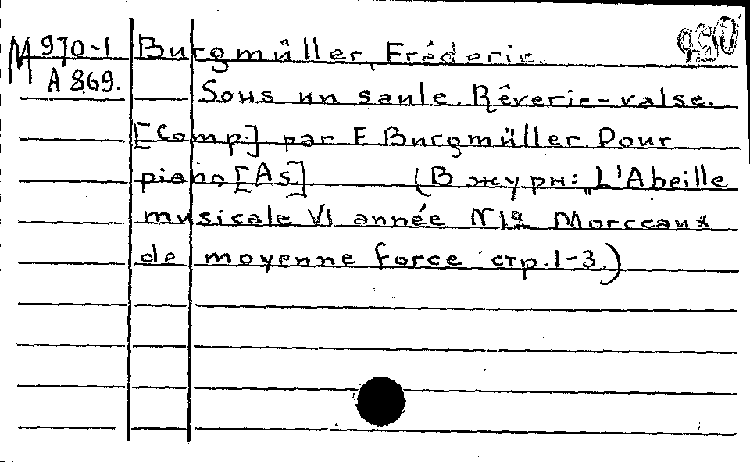 M 970-1 Burgmüller, Fréderic.
A 869.
Sous un saule. Rêverie-valse.
[Comp.] par F Burgmüller Pour
piano [As] (В журн: „L'Abeille
musicale VI année N12 Morceaux
de moyenne force стр. 1-3.)